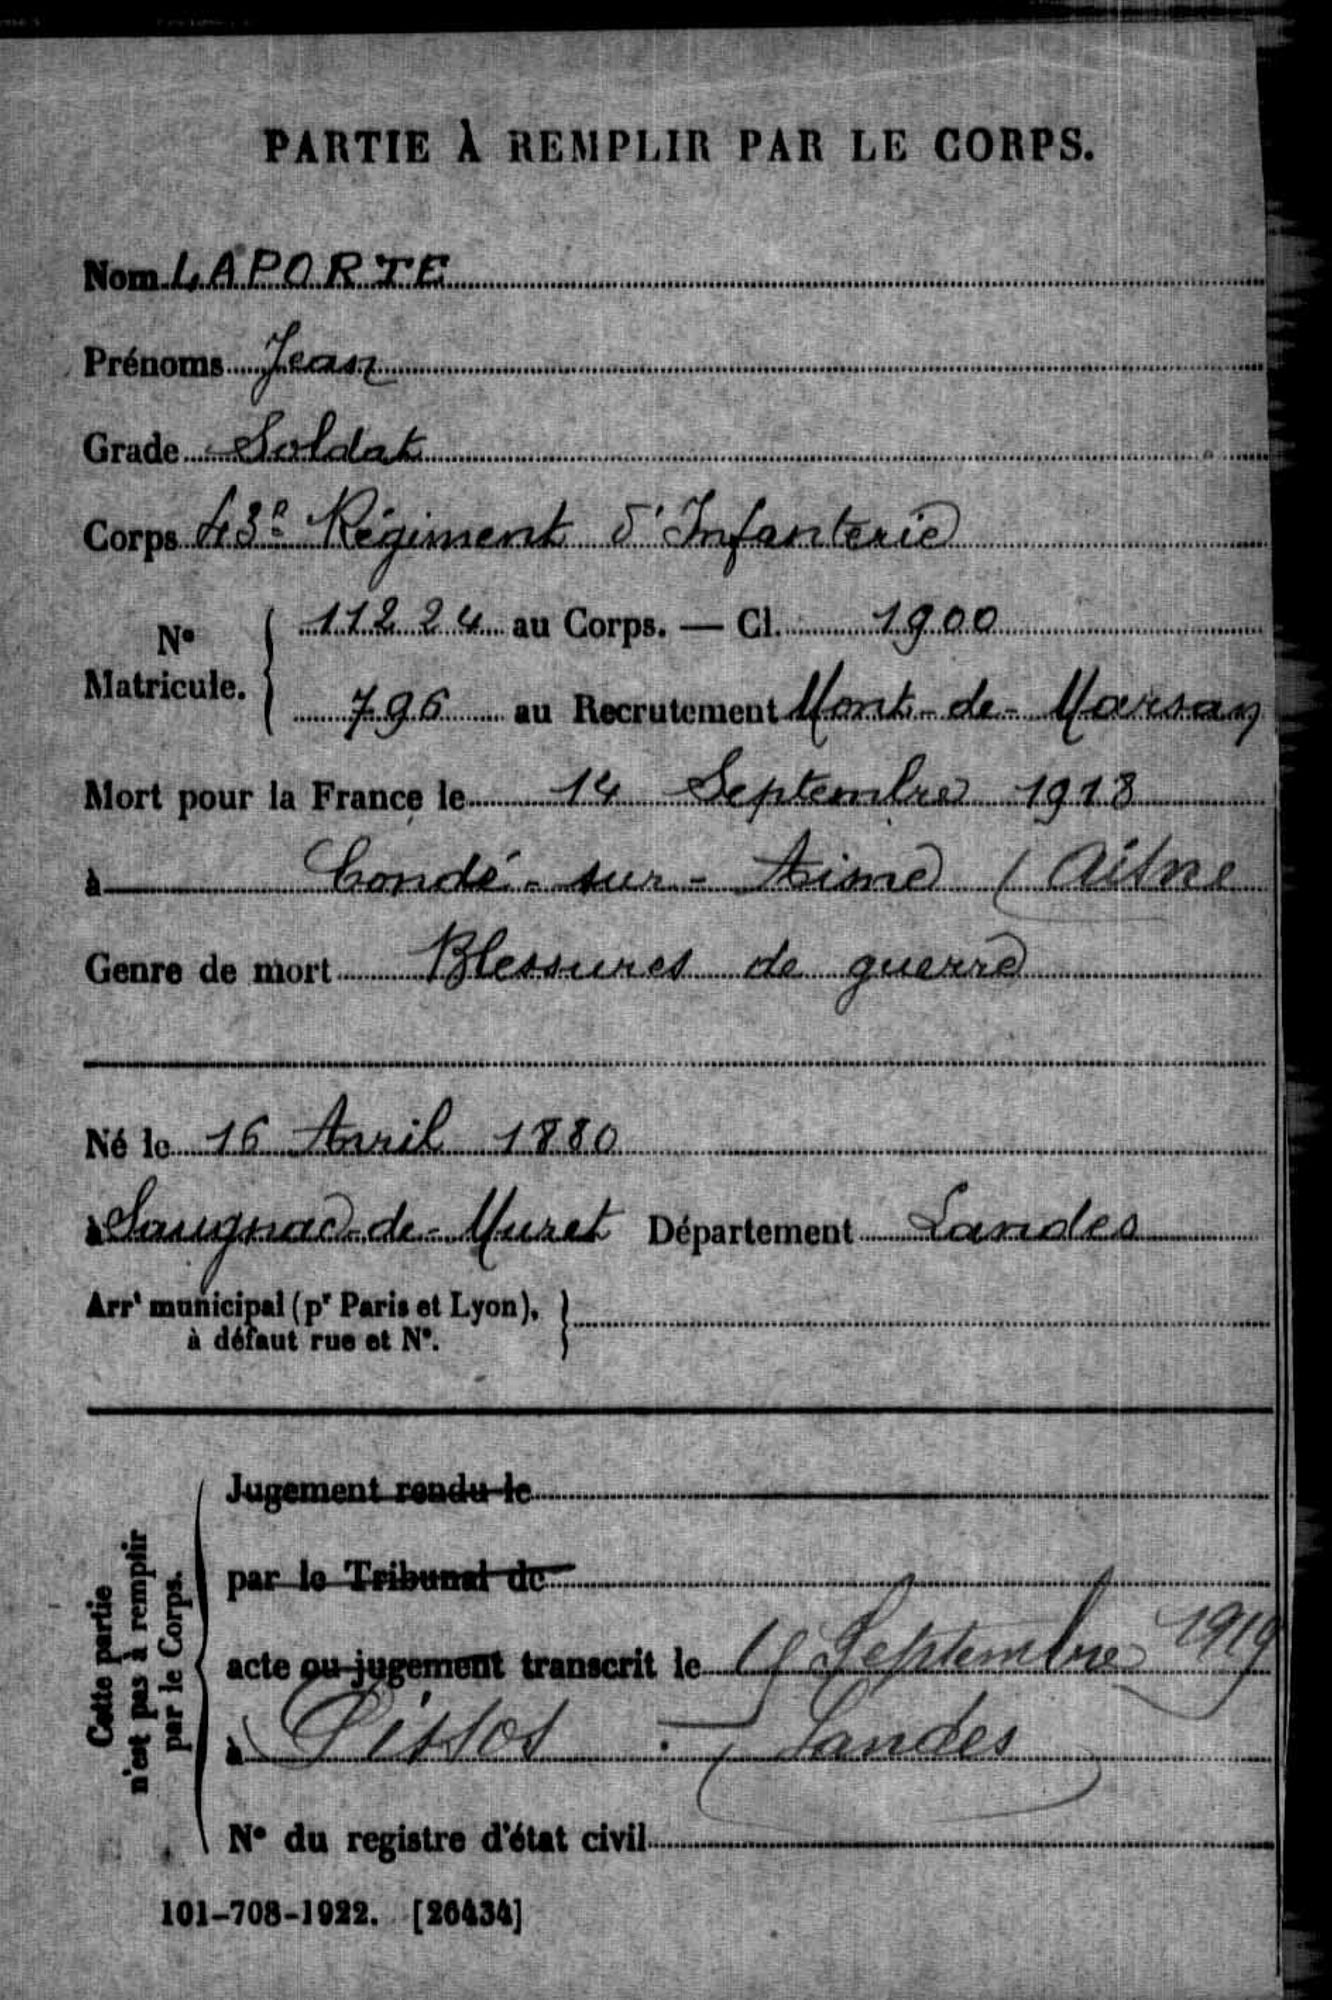 PARTIE À REMPLIR PAR LE CORPS.
Nom LAPORTE
Prénoms Jean
Grade Soldat
Corps 43e Régiment d'Infanterie
N° Matricule. { 11224 au Corps. — Cl. 1900
796 au Recrutement Mont-de-Marsan
Mort pour la France le 14 Septembre 1918
à Condé-sur-Aisne (Aisne
Genre de mort Blessures de guerre
Né le 16 Avril 1880
à Saugnac-de-Muret Département Landes
Arrt municipal (pr Paris et Lyon), }
à défaut rue et N°.
Cette partie n'est pas à remplir par le Corps.
Jugement rendu le
par le Tribunal de
acte ou jugement transcrit le Septembre 1919
à Pissos (Landes
N° du registre d'état civil
101-708-1922. [26434]